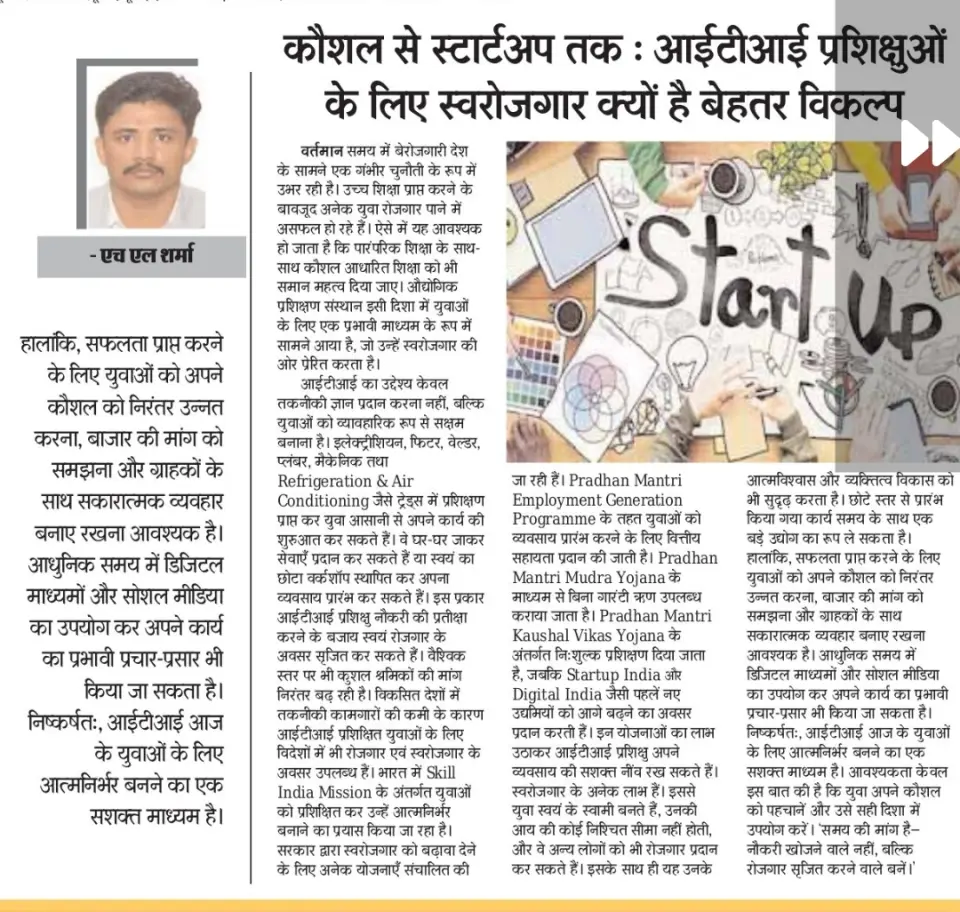 कौशल से स्टार्टअप तक : आईटीआई प्रशिक्षुओं
के लिए स्वरोजगार क्यों है बेहतर विकल्प
- एच एल शर्मा
हालांकि, सफलता प्राप्त करने
के लिए युवाओं को अपने
कौशल को निरंतर उन्नत
करना, बाजार की मांग को
समझना और ग्राहकों के
साथ सकारात्मक व्यवहार
बनाए रखना आवश्यक है।
आधुनिक समय में डिजिटल
माध्यमों और सोशल मीडिया
का उपयोग कर अपने कार्य
का प्रभावी प्रचार-प्रसार भी
किया जा सकता है।
निष्कर्षतः, आईटीआई आज
के युवाओं के लिए
आत्मनिर्भर बनने का एक
सशक्त माध्यम है।
वर्तमान समय में बेरोजगारी देश
के सामने एक गंभीर चुनौती के रूप में
उभर रही है। उच्च शिक्षा प्राप्त करने के
बावजूद अनेक युवा रोजगार पाने में
असफल हो रहे हैं। ऐसे में यह आवश्यक
हो जाता है कि पारंपरिक शिक्षा के साथ-
साथ कौशल आधारित शिक्षा को भी
समान महत्व दिया जाए। औद्योगिक
प्रशिक्षण संस्थान इसी दिशा में युवाओं
के लिए एक प्रभावी माध्यम के रूप में
सामने आया है, जो उन्हें स्वरोजगार की
ओर प्रेरित करता है।
आईटीआई का उद्देश्य केवल
तकनीकी ज्ञान प्रदान करना नहीं, बल्कि
युवाओं को व्यावहारिक रूप से सक्षम
बनाना है। इलेक्ट्रीशियन, फिटर, वेल्डर,
प्लंबर, मैकेनिक तथा
Refrigeration & Air
Conditioning जैसे ट्रेड्स में प्रशिक्षण
प्राप्त कर युवा आसानी से अपने कार्य की
शुरुआत कर सकते हैं। वे घर-घर जाकर
सेवाएँ प्रदान कर सकते हैं या स्वयं का
छोटा वर्कशॉप स्थापित कर अपना
व्यवसाय प्रारंभ कर सकते हैं। इस प्रकार
आईटीआई प्रशिक्षु नौकरी की प्रतीक्षा
करने के बजाय स्वयं रोजगार के
अवसर सृजित कर सकते हैं। वैश्विक
स्तर पर भी कुशल श्रमिकों की मांग
निरंतर बढ़ रही है। विकसित देशों में
तकनीकी कामगारों की कमी के कारण
आईटीआई प्रशिक्षित युवाओं के लिए
विदेशों में भी रोजगार एवं स्वरोजगार के
अवसर उपलब्ध हैं। भारत में Skill
India Mission के अंतर्गत युवाओं
को प्रशिक्षित कर उन्हें आत्मनिर्भर
बनाने का प्रयास किया जा रहा है।
सरकार द्वारा स्वरोजगार को बढ़ावा देने
के लिए अनेक योजनाएँ संचालित की
Start Up
जा रही हैं। Pradhan Mantri
Employment Generation
Programme के तहत युवाओं को
व्यवसाय प्रारंभ करने के लिए वित्तीय
सहायता प्रदान की जाती है। Pradhan
Mantri Mudra Yojana के
माध्यम से बिना गारंटी ऋण उपलब्ध
कराया जाता है। Pradhan Mantri
Kaushal Vikas Yojana के
अंतर्गत निःशुल्क प्रशिक्षण दिया जाता
है, जबकि Startup India और
Digital India जैसी पहलें नए
उद्यमियों को आगे बढ़ने का अवसर
प्रदान करती हैं। इन योजनाओं का लाभ
उठाकर आईटीआई प्रशिक्षु अपने
व्यवसाय की सशक्त नींव रख सकते हैं।
स्वरोजगार के अनेक लाभ हैं। इससे
युवा स्वयं के स्वामी बनते हैं, उनकी
आय की कोई निश्चित सीमा नहीं होती,
और वे अन्य लोगों को भी रोजगार प्रदान
कर सकते हैं। इसके साथ ही यह उनके
आत्मविश्वास और व्यक्तित्व विकास को
भी सुदृढ़ करता है। छोटे स्तर से प्रारंभ
किया गया कार्य समय के साथ एक
बड़े उद्योग का रूप ले सकता है।
हालांकि, सफलता प्राप्त करने के लिए
युवाओं को अपने कौशल को निरंतर
उन्नत करना, बाजार की मांग को
समझना और ग्राहकों के साथ
सकारात्मक व्यवहार बनाए रखना
आवश्यक है। आधुनिक समय में
डिजिटल माध्यमों और सोशल मीडिया
का उपयोग कर अपने कार्य का प्रभावी
प्रचार-प्रसार भी किया जा सकता है।
निष्कर्षतः, आईटीआई आज के युवाओं
के लिए आत्मनिर्भर बनने का एक
सशक्त माध्यम है। आवश्यकता केवल
इस बात की है कि युवा अपने कौशल
को पहचानें और उसे सही दिशा में
उपयोग करें। 'समय की मांग है–
नौकरी खोजने वाले नहीं, बल्कि
रोजगार सृजित करने वाले बनें।'